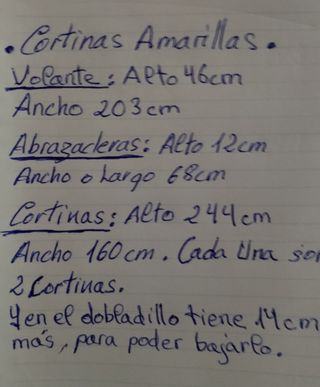 . Cortinas Amarillas.
Volante: Alto 46cm
Ancho 203cm
Abrazaderas: Alto 12cm
Ancho o Largo 68cm
Cortinas: Alto 244cm
Ancho 160cm. Cada Una son
2 Cortinas.
Y en el dobladillo tiene 14cm
más, para poder bajarlo.